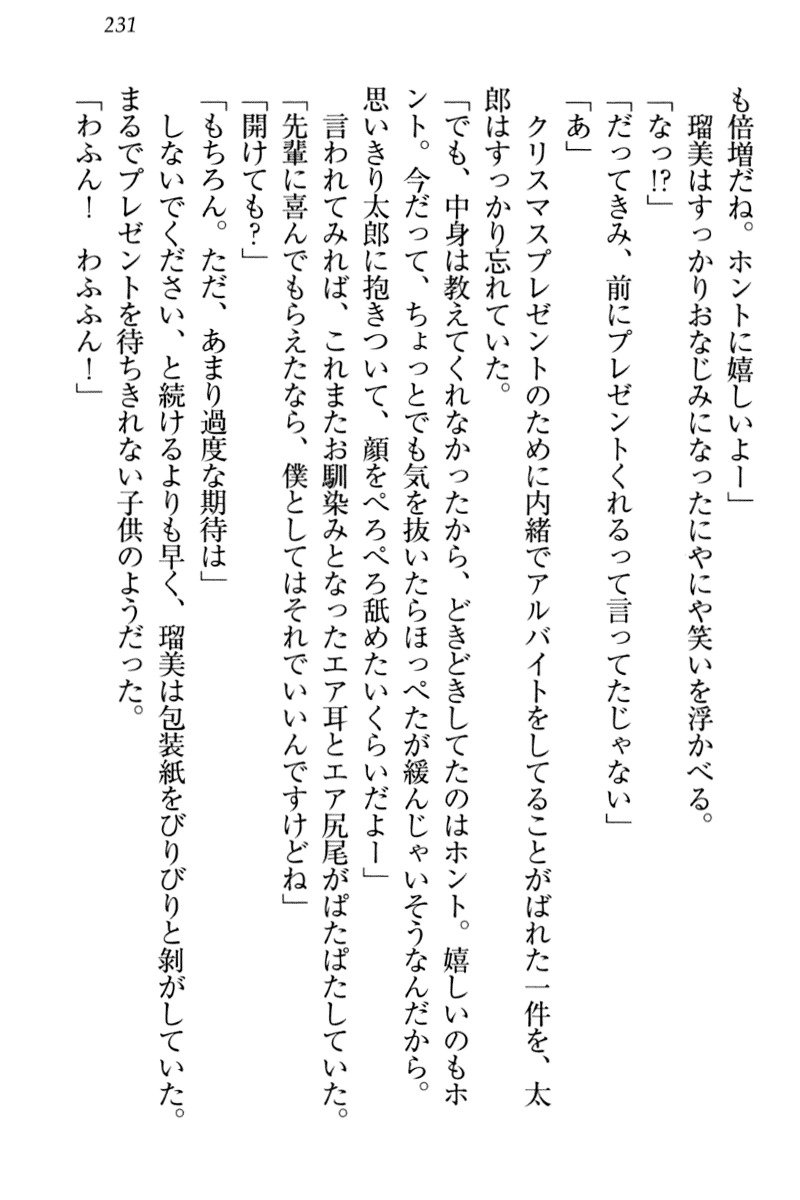 231
も倍増だね。ホントに嬉しいよー」
　瑠美はすっかりおなじみになったにやにや笑いを浮かべる。
「なっ!?」
「だってきみ、前にプレゼントくれるって言ってたじゃない」
「あ」
　クリスマスプレゼントのために内緒でアルバイトをしてることがばれた一件を、太
郎はすっかり忘れていた。
「でも、中身は教えてくれなかったから、どきどきしてたのはホント。嬉しいのもホ
ント。今だって、ちょっとでも気を抜いたらほっぺたが緩んじゃいそうなんだから。
思いきり太郎に抱きついて、顔をぺろぺろ舐めたいくらいだよー」
　言われてみれば、これまたお馴染みとなったエア耳とエア尻尾がぱたぱたしていた。
「先輩に喜んでもらえたなら、僕としてはそれでいいんですけどね」
「開けても？」
「もちろん。ただ、あまり過度な期待は」
　しないでください、と続けるよりも早く、瑠美は包装紙をびりびりと剝がしていた。
まるでプレゼントを待ちきれない子供のようだった。
「わふん！　わふふん！」